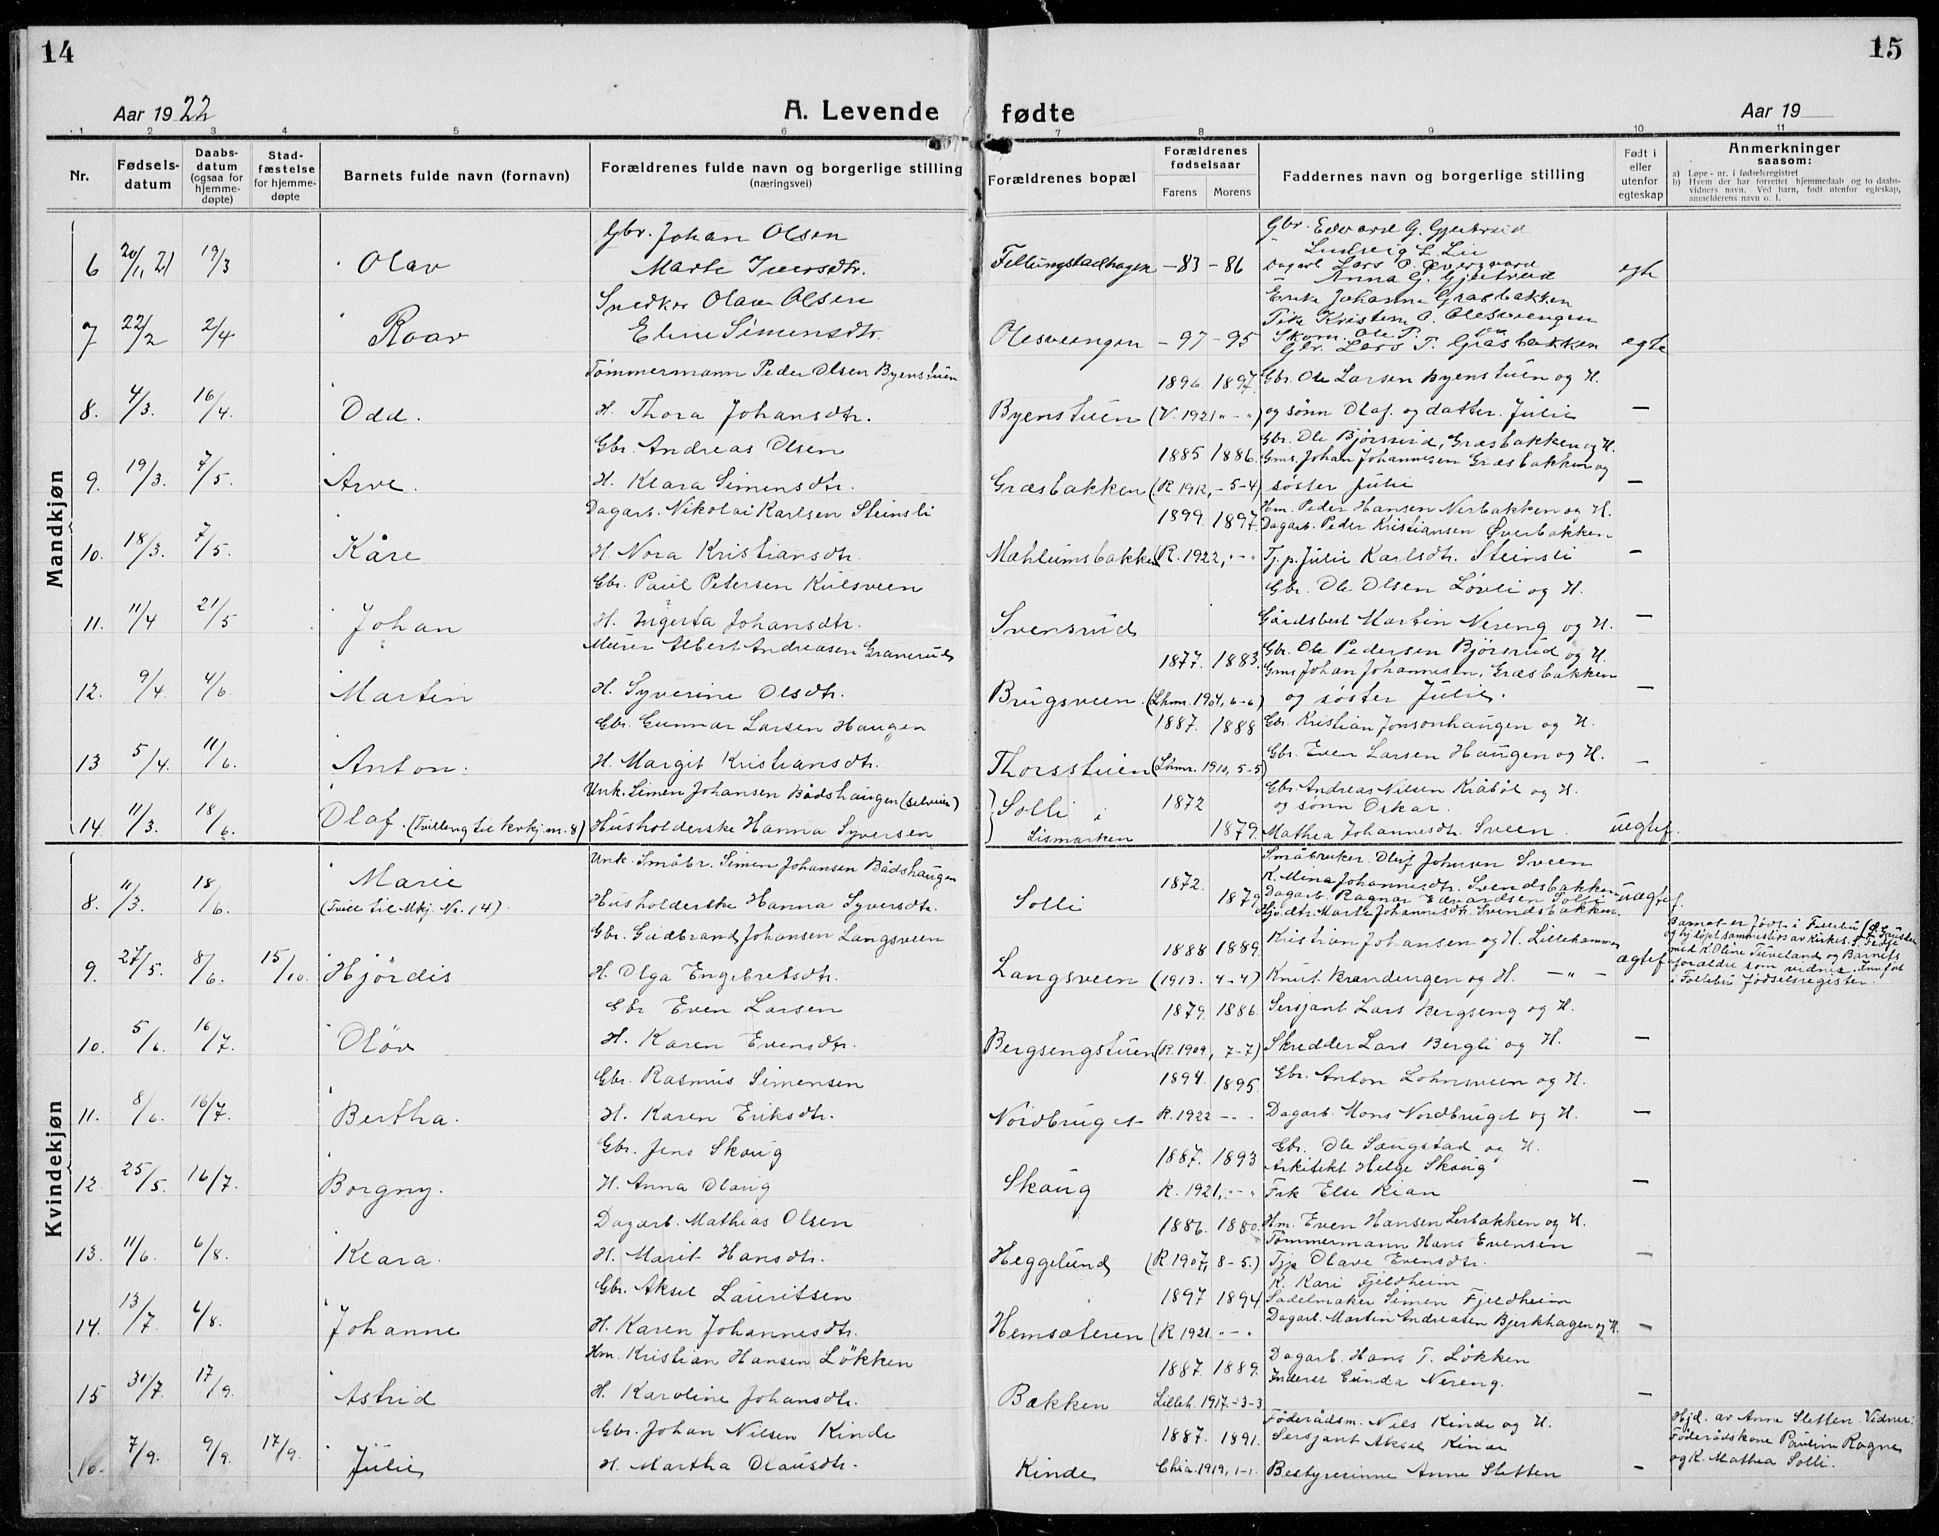 14
15
Aar 1922
A. Levende fødte
Aar 19
1 2 3 4 5 6 7 8 9 10 11
Nr.
Fødselsdatum
Daabsdatum (ogsaa for hjemmedøpte)
Stadfæstelse for hjemmedøpte
Barnets fulde navn (fornavn)
Forældrenes fulde navn og borgerlige stilling (næringsvei)
Forældrenes bopæl
Forældrenes fødselsaar
Farens Morens
Faddernes navn og borgerlige stilling
Født i eller utenfor egteskap
Anmerkninger saasom:
a) Løpe-nr. i fødselsregistret
b) Hvem der har forrettet hjemmedaab og to daabsvidners navn. Ved barn, født utenfor egteskap, anmelderens navn o. l.
Mandkjøn
Gbr. Johan Olsen Gbr. Edvard G. Gjertrud
Ludvig L. Lie
6 20/11 21 19/3 Olav Marte Iversdtr. -83 -86 Dagarb. Lars egte
Anna G. Gjertrud
Snedker Olav Olsen Johanna Græsbakken
7 22/2 2/4 Roar Eline Simensdtr. Olesveengen -97 -95 egte
Gbr. Lars T. Græsbakken
Tømmermann Peder Olsen Byenstuen 1896 1897. Gbr. Ole Larsen Byenstuen og H.
8. 4/3. 16/4. Odd. H. Thora Johansdtr. Byenstuen (V. 1921 " - ") og sønn Olaf. og datter. Julie —
Gbr. Andreas Olsen 1885 1886. Gbr. Ole Bjørsrud, Græsbakken og H.
Gms. Johan Johannesen Græsbakken og
9. 19/3. 7/5. Arve. H. Klara Simensdtr. Græsbakken (R 1912, -5-4) søster Julie —
Dagarb. Nikolai Karlsen Steinsli 1899 1897. Hm. Peder Hansen Nerbakken og H.
Dagarb. Peder Kristiansen Øverbakken
10. 18/3. 7/5. Kåre H. Nora Kristiansdtr. Mæhlumsbakken (R. 1922, - " - Tj. p. Julie Karlsdtr. Steinsli —
Gbr. Paul Petersen Kulsveen Gbr. Ole Olsen Løvli og H.
11. 11/4 21/5 Johan H. Ingerta Johansdtr. Svensrud Gårdsbest Martin Nereng og H. —
Murer Albert Andreasen Granerud 1877. 1883. Gbr. Ole Pedersen Bjørsrud og H.
Gms Johan Johannesen, Græsbakken
12. 9/4. 4/6. Martin H. Syverine Olsdtr. Brugsveen. (Lhmr. 1904, 6-6) og søster Julie. —
Gbr. Gunnar Larsen Haugen 1887. 1888 Gbr. Kristian Jonsonhaugen og H.
13 5/4. 11/6. Anton. H. Margit Kristiansdtr. Thorsstuen (Lhmr. 1910, 5-5) Gbr. Even Larsen Haugen og H. —
Unk. Simen Johansen Bådshaugen (selveier) Solli i 1872 Gbr. Andreas Nilsen Kråbøl og H.
og sønn Oskar.
14. 11/3. 18/6. Olaf. (Tvilling til kvkj. nr. 8) Husholderske Hanna Syversen Lismarken 1879. Mathea Johannesdtr. Sveen. uegtef.
Kvindekjøn
Unk. Småbr. Simen Johansen Bådshaugen 1872. Småbruker. Oluf Johnsen Sveen
K. Mina Johannesdtr. Svendsbakken
8. 11/3. 18/6. Marie Husholderske Hanna Syversdtr. Solli 1879 Dagarb. Ragnar Edvardsen Solli uægtef.
(Tvill til Mkj. Nr. 14) Hjv.dtr. Marte Johannesdtr. Svendsbakken.
Gbr. Gudbrand Johansen Langsveen 1888 1889. Kristian Johansen og H. Lillehammer Barnet er født i Follebu
og hj. døpt sammesteds av Kirkes.
med K. Oline Tuveland og Barnets
9. 27/5. 8/6. 15/10. Hjördis H. Olga Engebretsdtr. Langsveen (1913. 4-4) Knut Brandengen og H. — " — ægtef forældre som vidner. Innført
i Follebu fødselsregister.
Gbr Even Larsen 1879. 1886. Sersjant Lars Bergseng og H.
10. 5/6. 16/7. Oløv H. Karen Evensdtr. Bergsengstuen (R. 1909, 7-7) Skredder Lars Bergli og H. —
Gbr. Rasmus Simensen 1894. 1895. Gbr. Anton Lohnsveen og H.
11. 8/6. 16/7. Bertha. H. Karen Eriksdtr. Nordbruget R. 1922 - " - Dagarb. Mons Nordbruget og H. —
Gbr. Jens Skaug 1887. 1893 Gbr. Ole Saugstad og H.
Arkitekt Helge Skaug
12. 25/5. 16/7. Borgny. H. Anna Olaug Skaug R. 1921, - " - Frk Else Kian —
Dagarb. Mathias Olsen 1886. 1880. Hm. Even Hansen Lerbakken og H.
Tømmermann Hans Evensen
13. 11/6. 6/8. Klara. H. Marit Hansdtr. Heggelund (R 1907, 8-5.) Tjp Olave Evensdtr. —
Gbr. Aksel Lauritsen 1897 1894 K. Kari Fjeldheim
Sadelmaker Simen Fjeldheim
14. 13/7 6/8. Johanne H. Karen Johannesdtr. Hemsæteren (R 1921. - " - Dagarb. Martin Andreasen Bjerkhagen og H. —
Hm. Kristian Hansen Løkken 1887. 1889. Dagarb. Hans T. Løkken
15 31/7. 17/9. Astrid H. Karoline Johansdtr. Bakken Lilleh. 1917. -3-3 Gunda Nereng. —
Gbr. Johan Nilsen Kinde 1887. 1891. Føderådsm. Nils Kinde og H. Hjd. av Anne Sletten. Vidner:
Sersjant Aksel Kinde Føderådskone Pauline Ragne
16. 7/9. 9/9. 17/9. Julie H. Martha Olausdtr. Kinde Chra. 1919, 1-1. Bestyrerinne Anne Sletten — og K. Mathea Solli.